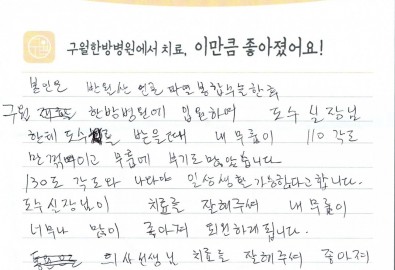 구월한방병원에서 치료, 이만큼 좋아졌어요!
본인은 반월상 연골 파열 봉합수술한 후
구월 한방병원에 입원하며 도수 실장님
한테 도수 받을때 내 무릎이 110 각도
만 꺽이고 무릎에 부기도 많았습니다.
130도 각도와 나와야 일상생활 가능하다고 합니다.
도수실장님이 치료를 잘해주셔 내 무릎이
너무나 많이 좋아져 퇴원하게됩니다.
의사선생님 치료를 잘해주셔 좋아져